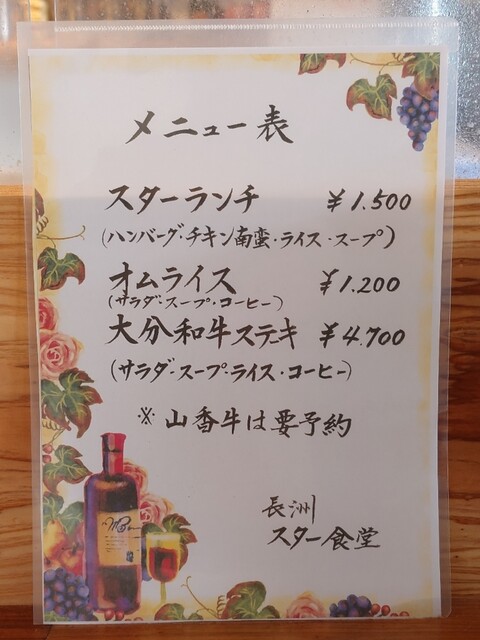 メニュー表
スターランチ ¥1.500
(ハンバーグ・チキン南蛮・ライス・スープ)
オムライス ¥1.200
(サラダ・スープ・コーヒー)
大分和牛ステキ ¥4.700
(サラダ・スープ・ライス・コーヒー)
※ 山香牛は要予約
長洲
スター食堂